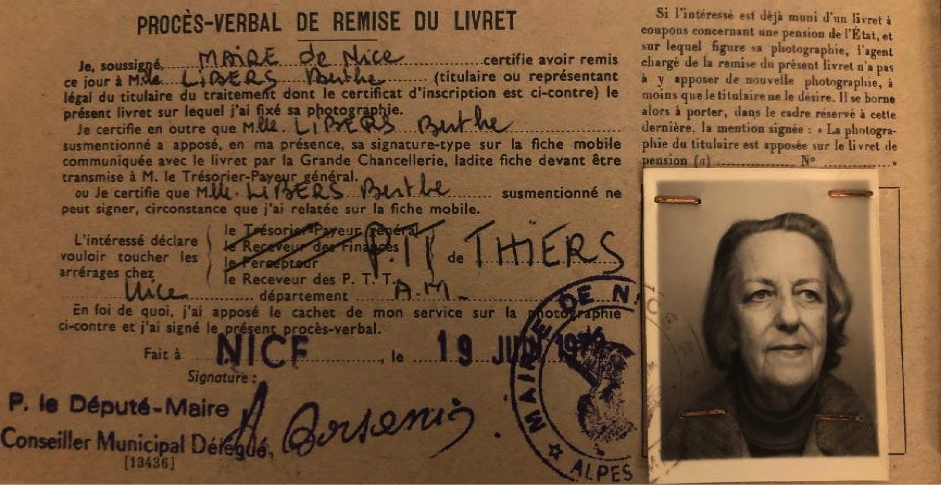 PROCÈS-VERBAL DE REMISE DU LIVRET
Je, soussigné, MAIRE de Nice certifie avoir remis
ce jour à Mlle LIBERS Berthe (titulaire ou représentant
légal du titulaire du traitement dont le certificat d'inscription est ci-contre) le
présent livret sur lequel j'ai fixé sa photographie.
Je certifie en outre que Mlle. LIBERS Berthe
susmentionné a apposé, en ma présence, sa signature-type sur la fiche mobile
communiquée avec le livret par la Grande Chancellerie, ladite fiche devant être
transmise à M. le Trésorier-Payeur général.
ou Je certifie que Mlle. LIBERS Berthe susmentionné ne
peut signer, circonstance que j'ai relatée sur la fiche mobile.
L'intéressé déclare
vouloir toucher les
arrérages chez
le Trésorier-Payeur général
le Receveur des Finances
le Percepteur
le Receveur des P. T. T.
P.TT de THIERS
Nice département A.M.
En foi de quoi, j'ai apposé le cachet de mon service sur la photographie
ci-contre et j'ai signé le présent procès-verbal.
Fait à NICE, le 19 JUIN
Signature :
P. le Député-Maire
Conseiller Municipal Délégué,
[13436]
MAIRIE DE NI
ALPES
Si l'intéressé est déjà muni d'un livret à
coupons concernant une pension de l'État, et
sur lequel figure sa photographie, l'agent
chargé de la remise du présent livret n'a pas
à y apposer de nouvelle photographie, à
moins que le titulaire ne le désire. Il se borne
alors à porter, dans le cadre réservé à cette
dernière, la mention signée : « La photogra-
phie du titulaire est apposée sur le livret de
pension (a) N° ».